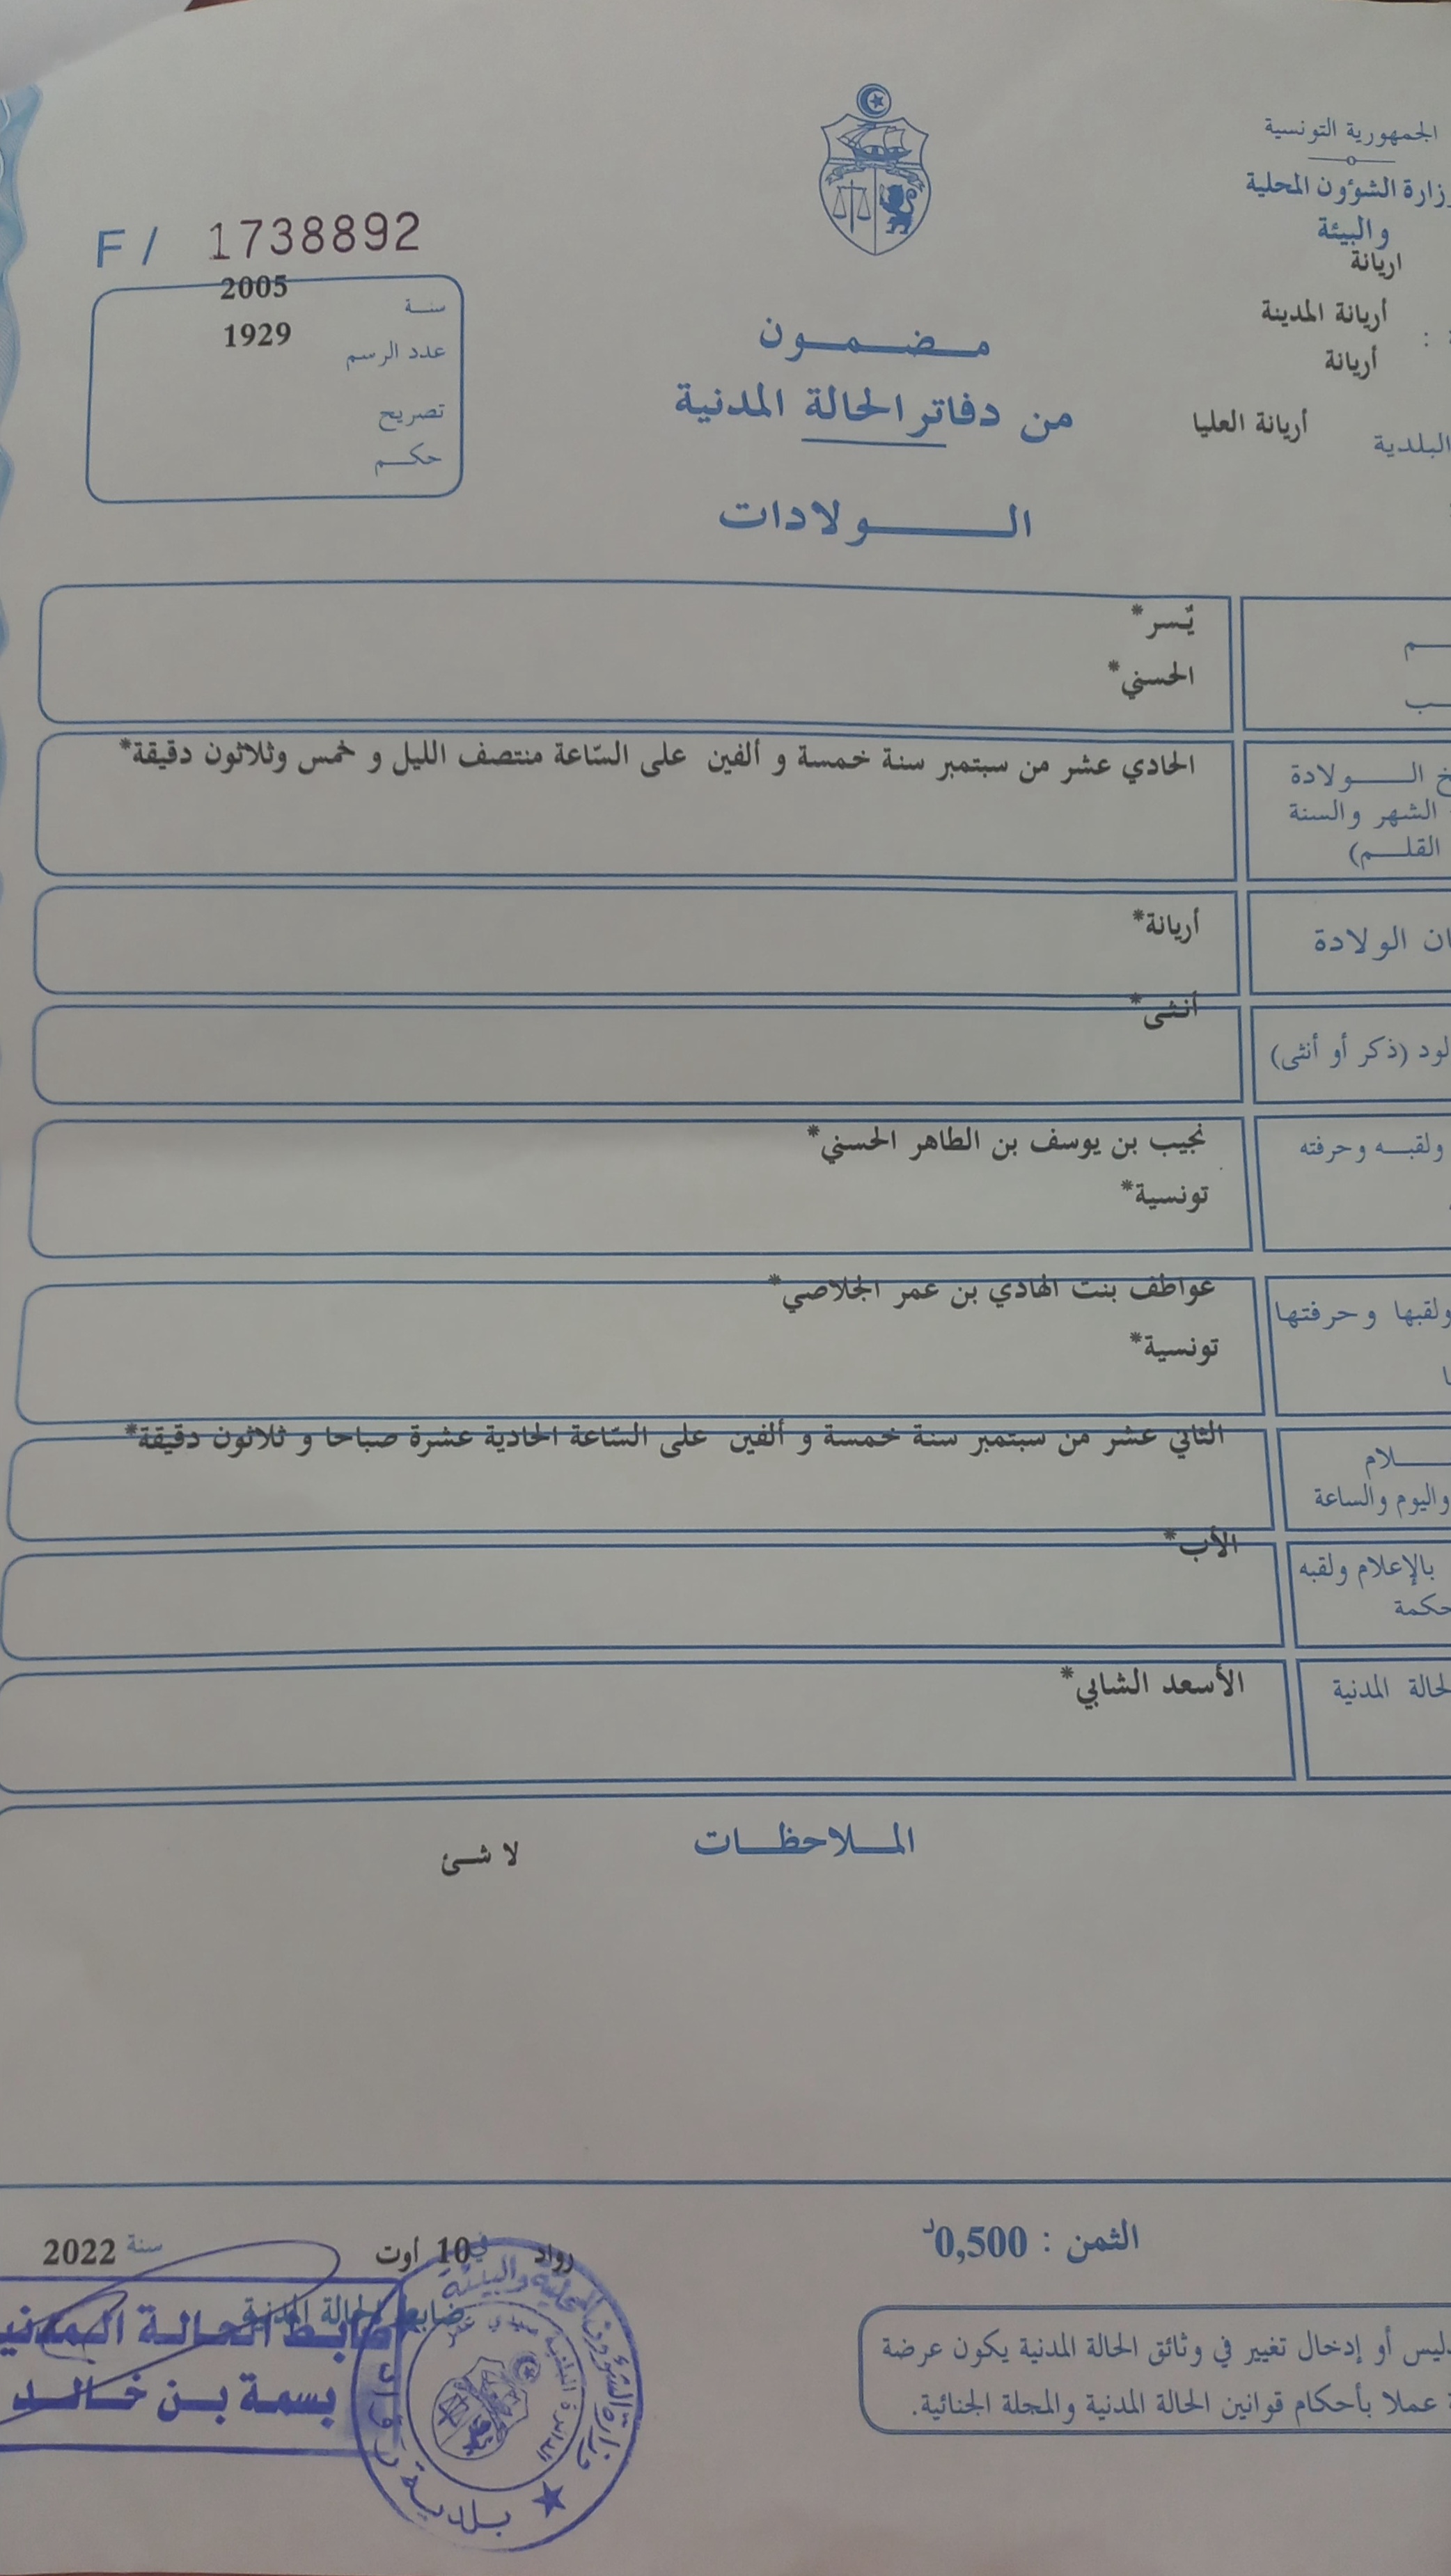 الجمهورية التونسية
وزارة الشؤون المحلية
والبيئة
اريانة
أريانة المدينة
أريانة
البلدية أريانة العليا
F / 1738892
سنة 2005
عدد الرسم 1929
تصريح
حكم
مضمون
من دفاتر الحالة المدنية
الولادات
يُسر*
الحسني*
الولادة
الشهر والسنة
القلم)
الحادي عشر من سبتمبر سنة خمسة و ألفين على السّاعة منتصف الليل و خمس وثلاثون دقيقة*
الولادة
أريانة*
(ذكر أو أنثى)
أنثى*
ولقبه وحرفته
نجيب بن يوسف بن الطاهر الحسني*
تونسية*
ولقبها وحرفتها
عواطف بنت الهادي بن عمر الجلاصي*
تونسية*
واليوم والساعة
الثاني عشر من سبتمبر سنة خمسة و ألفين على السّاعة الحادية عشرة صباحا و ثلاثون دقيقة*
بالإعلام ولقبه
الأب*
المدنية
الأسعد الشابي*
الملاحظات
لا شئ
الثمن : 0,500د
رواد في 10 أوت سنة 2022
ضابط الحالة المدنية
بسمة بن خالد
وزارة الشؤون المحلية والبيئة
بلدية رواد
أو إدخال تغيير في وثائق الحالة المدنية يكون عرضة
عملا بأحكام قوانين الحالة المدنية والمجلة الجنائية.